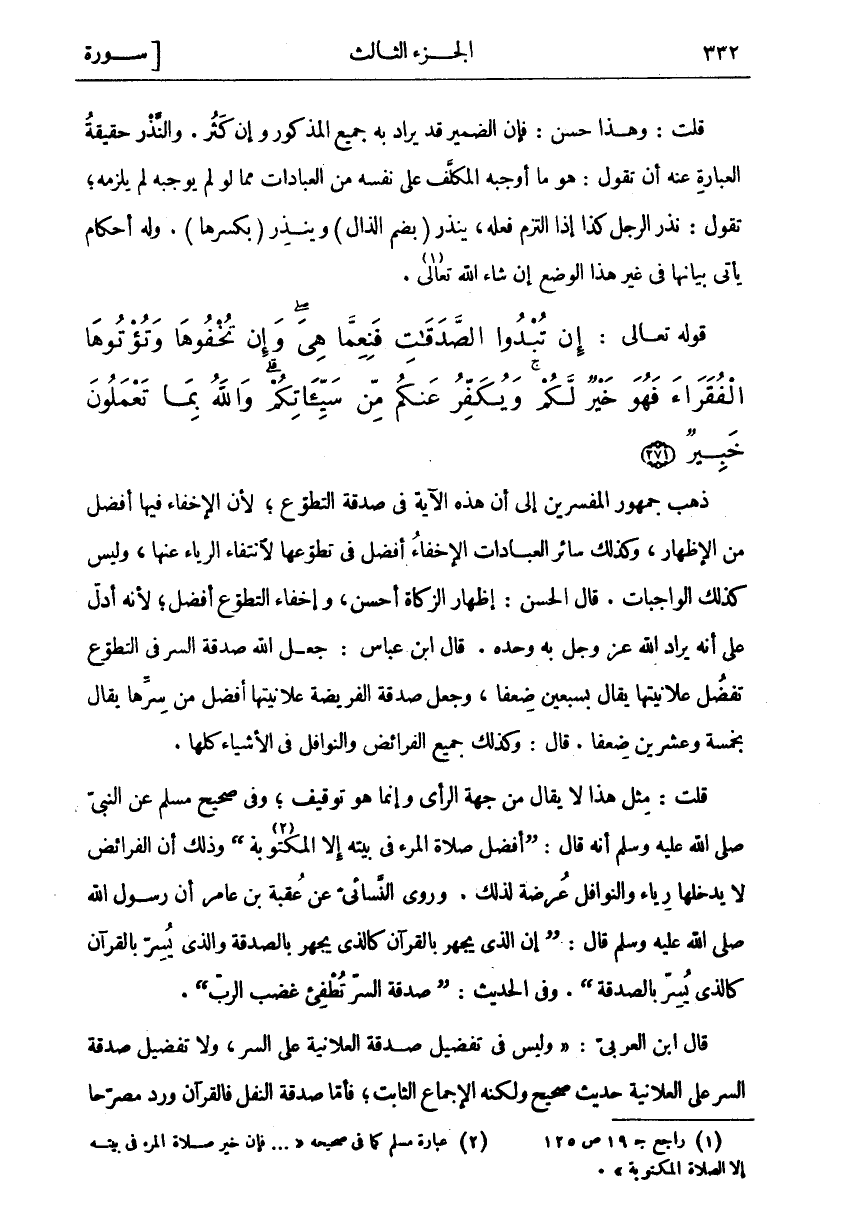 ٣٣٢ الجـزء الثـالث [ ســـورة
قلت : وهـذا حسن : فإن الضمير قد يراد به جميع المذكور و إن كَثُر . والنَّذْر حقيقةُ
العبارةِ عنه أن تقول : هو ما أوجبه المكلَّف على نفسه من العبادات مما لو لم يوجبه لم يلزمه؛
تقول : نذر الرجل كذا إذا التزم فعله، ينذر ( بضم الذال ) و ينـذِر ( بكسرها ) . وله أحكام
يأتى بيانها فى غير هذا الوضع إن شاء الله تعالى(١) .
قوله تعـالى : إِن تُبْدُوا الصَّدَقَٰتِ فَنِعِمَّا هِىَۖ وَإِن تُخْفُوهَا وَتُؤْتُوهَا
الْفُقَرَاءَ فَهُوَ خَيْرٌ لَّكُمْۚ وَيُكَفِّرُ عَنكُم مِّن سَيِّئَاتِكُمْۗ وَاللَّهُ بِمَـا تَعْمَلُونَ
خَبِـيرٌ ٢٧١
ذهب جمهور المفسرين إلى أن هذه الآية فى صدقة التطوّع ؛ لأن الإخفاء فيها أفضل
من الإظهار ، وكذلك سائر العبـادات الإخفاءُ أفضل فى تطوّعها لآنتفاء الرياء عنها ، وليس
كذلك الواجبات . قال الحسن : إظهار الزكاة أحسن، و إخفاء التطوّع أفضل؛ لأنه أدلّ
على أنه يراد الله عـز وجل به وحده . قال ابن عباس : جعـل الله صدقة السر فى التطوّع
تفضُل علانيتها يقال بسبعين ضِعفا ، وجعل صدقة الفريضة علانيتها أفضل من سِرِّها يقال
بخمسة وعشرين ضِعفا . قال : وكذلك جميع الفرائض والنوافل فى الأشياء كلها .
قلت : مِثل هذا لا يقال من جهة الرأى و إنما هو توقيف ؛ وفى صحيح مسلم عن النبىّ
صلى الله عليه وسلم أنه قال : ”أفضل صلاة المرء فى بيته إلا المكتوبة(٢)“ وذلك أن الفرائض
لا يدخلها رِياء والنوافل عُرضة لذلك . وروى النَّسائىّ عن عُقبة بن عامر أن رسـول الله
صلى الله عليه وسلم قال : ” إن الذى يجهر بالقرآن كالذى يجهر بالصدقة والذى يُسِرّ بالقرآن
كالذى يُسِرّ بالصدقة “ . وفى الحديث : ” صدقة السرّ تُطْفِئ غضب الربّ“ .
قال ابن العربىّ : « وليس فى تفضيل صـدقة العلانية على السر ، ولا تفضيل صدقة
السر على العلانية حديث صحيح ولكنه الإجماع الثابت؛ فأمّا صدقة النفل فالقرآن ورد مصرّحا
(١) راجع جـ ١٩ ص ١٢٥ (٢) عبارة مسلم كما فى صحيحه « ... فإن خير صـلاة المرء فى بيتـه
إلا الصلاة المكتوبة » .